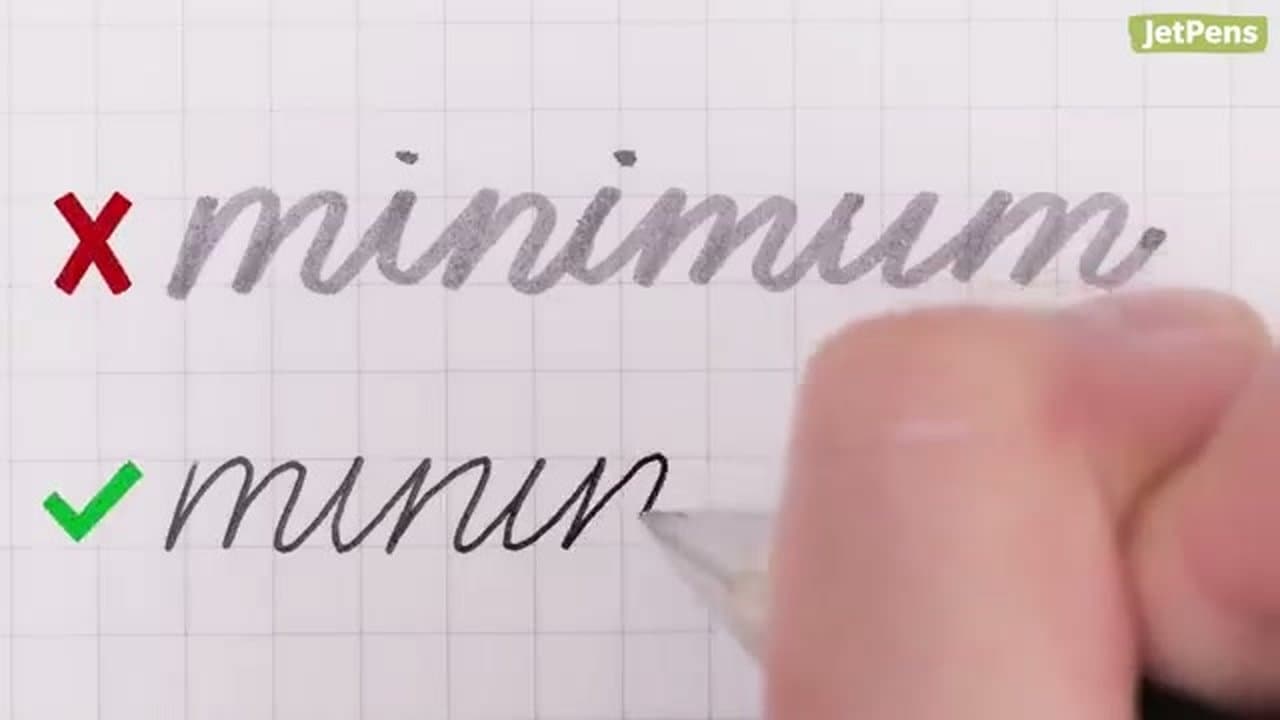 JetPens
minimum
minin